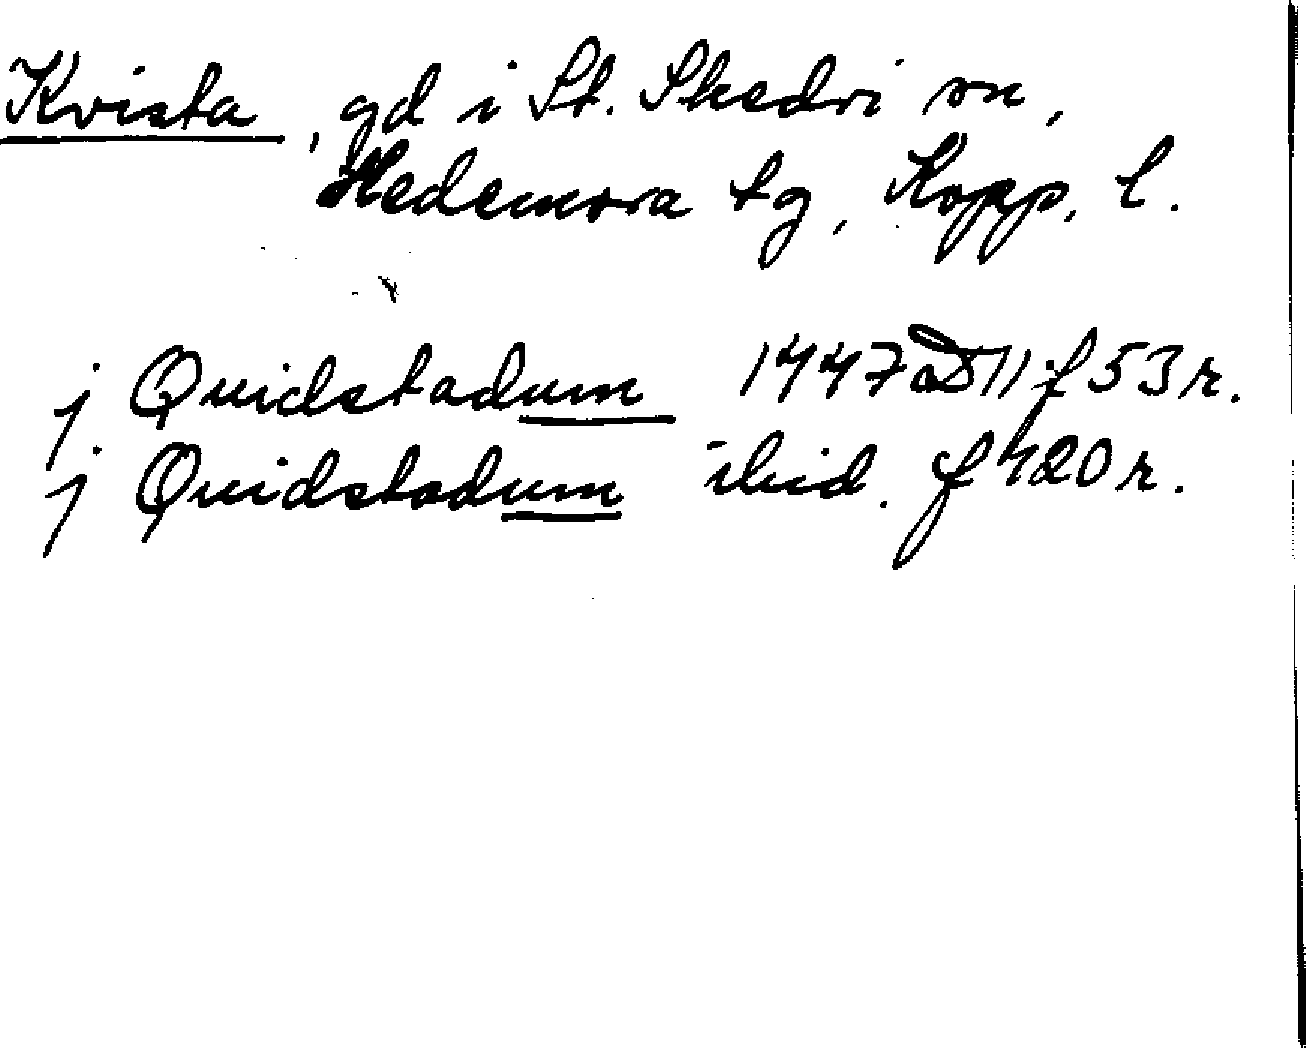 Kvista, gd i St. Skedvi sn,
Hedemora tg, Kopp. l.
j Quidstadum 1447 aD11 f 53 r.
j Quidstadum ibid. f 420 r.